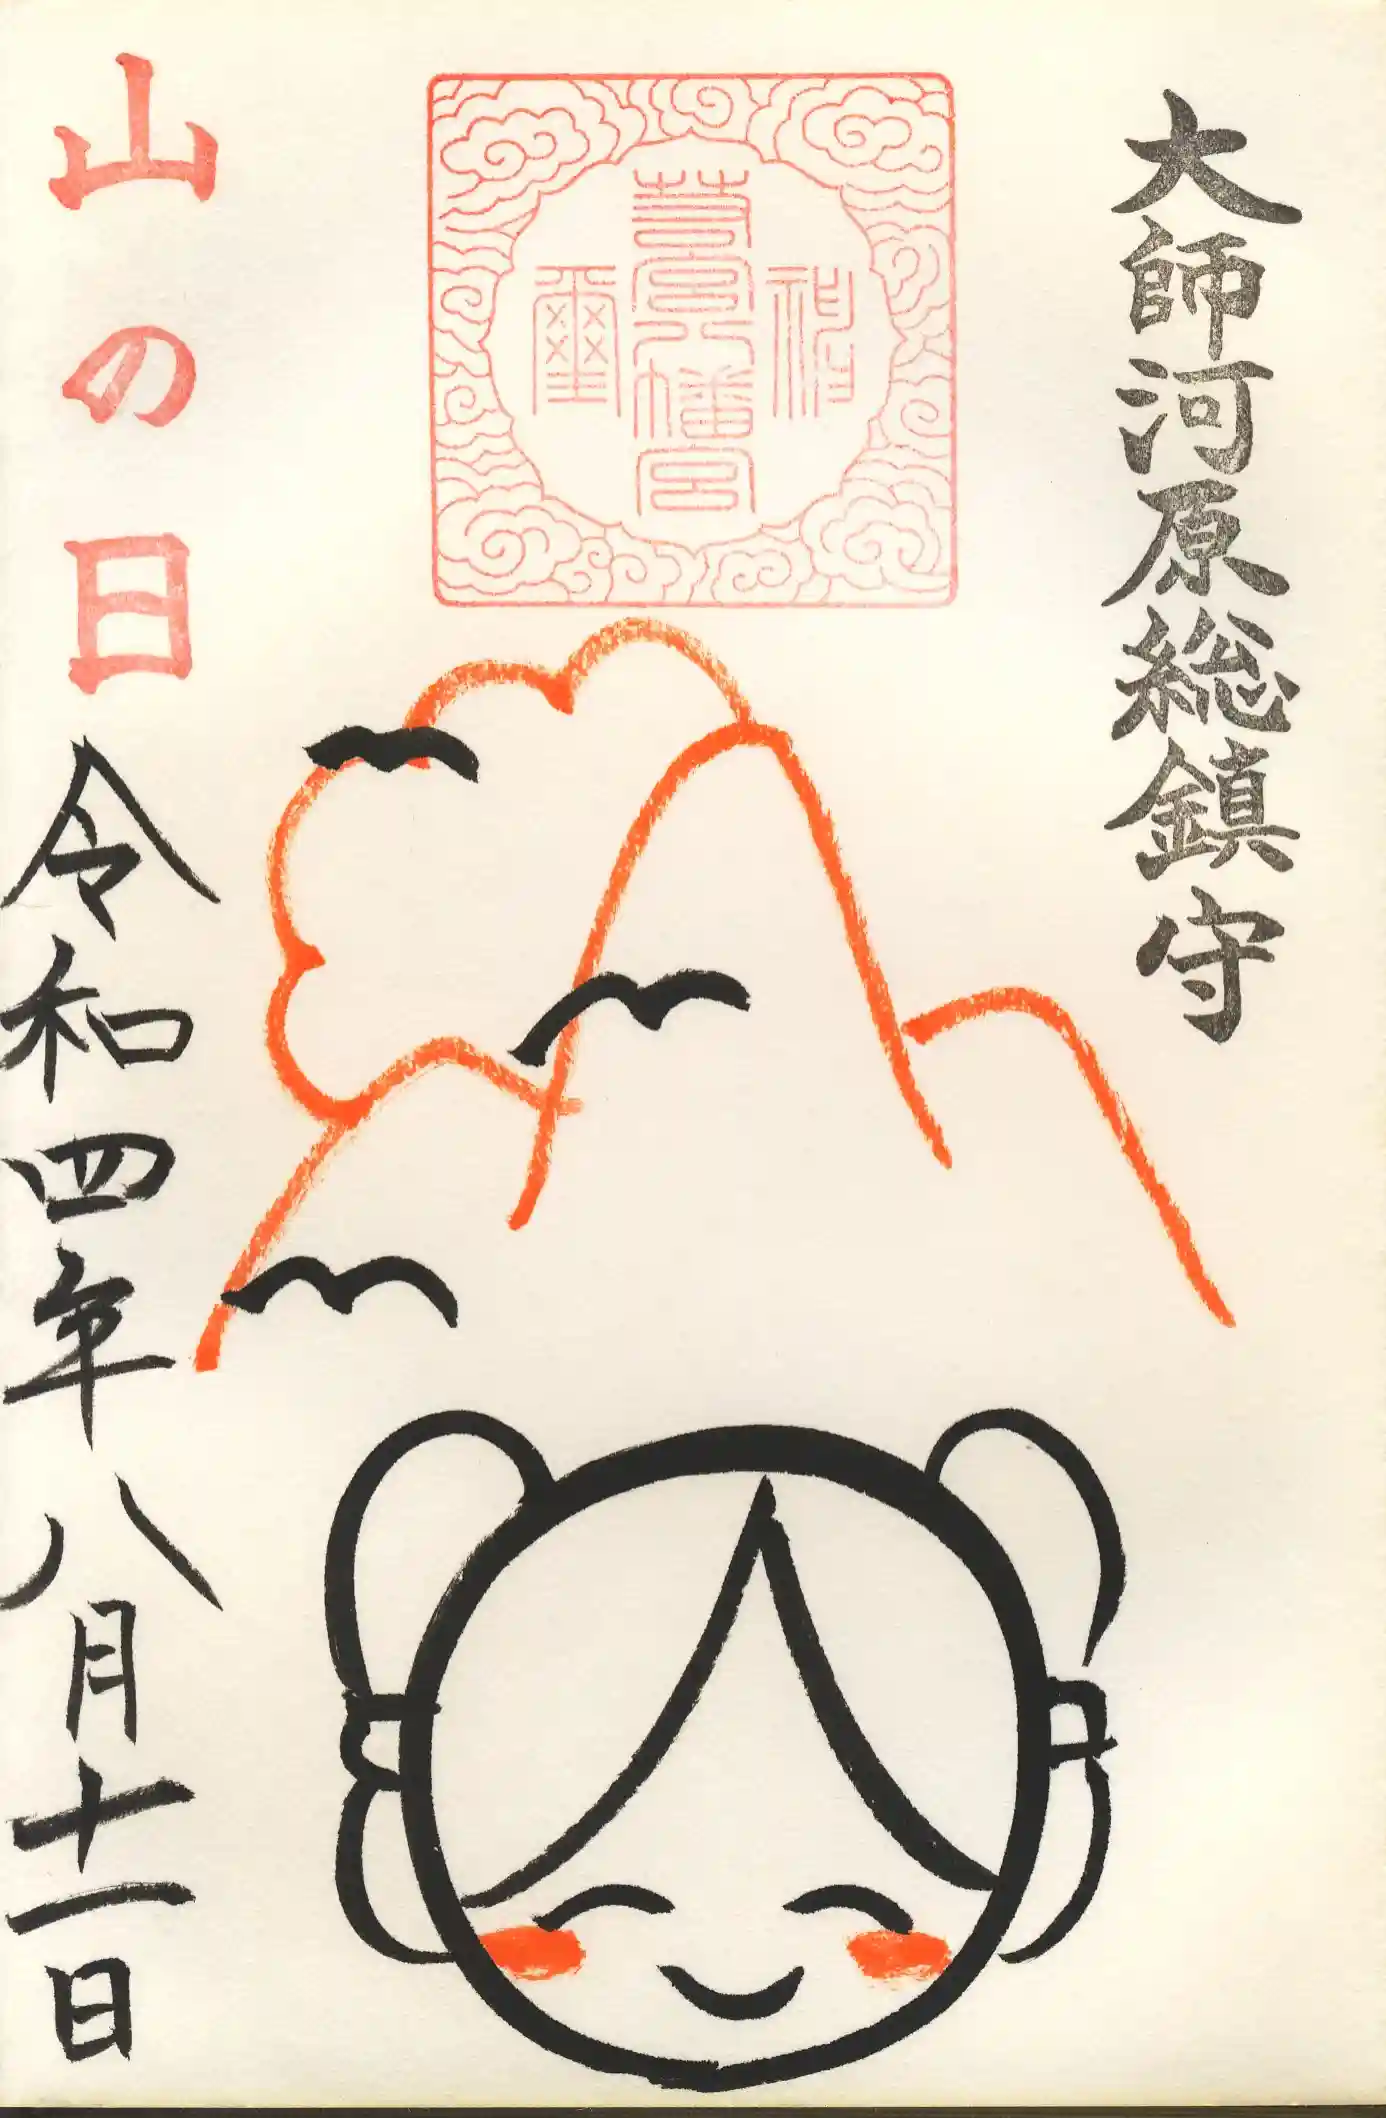 大師河原総鎮守
神璽
若宮八幡宮
山の日
令和四年八月十一日